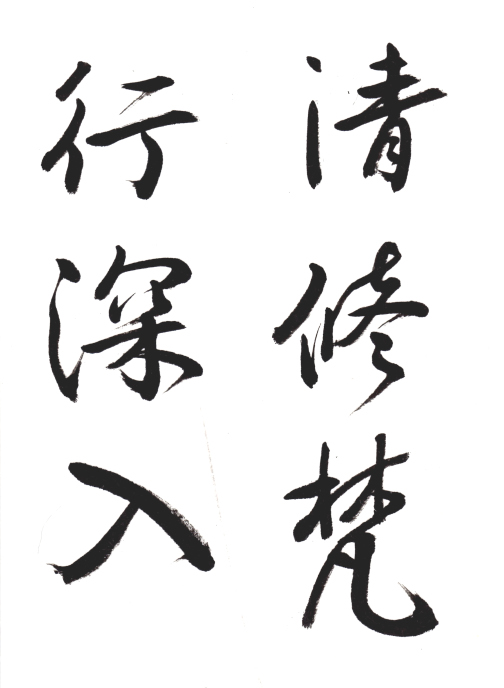 清修梵
行深入